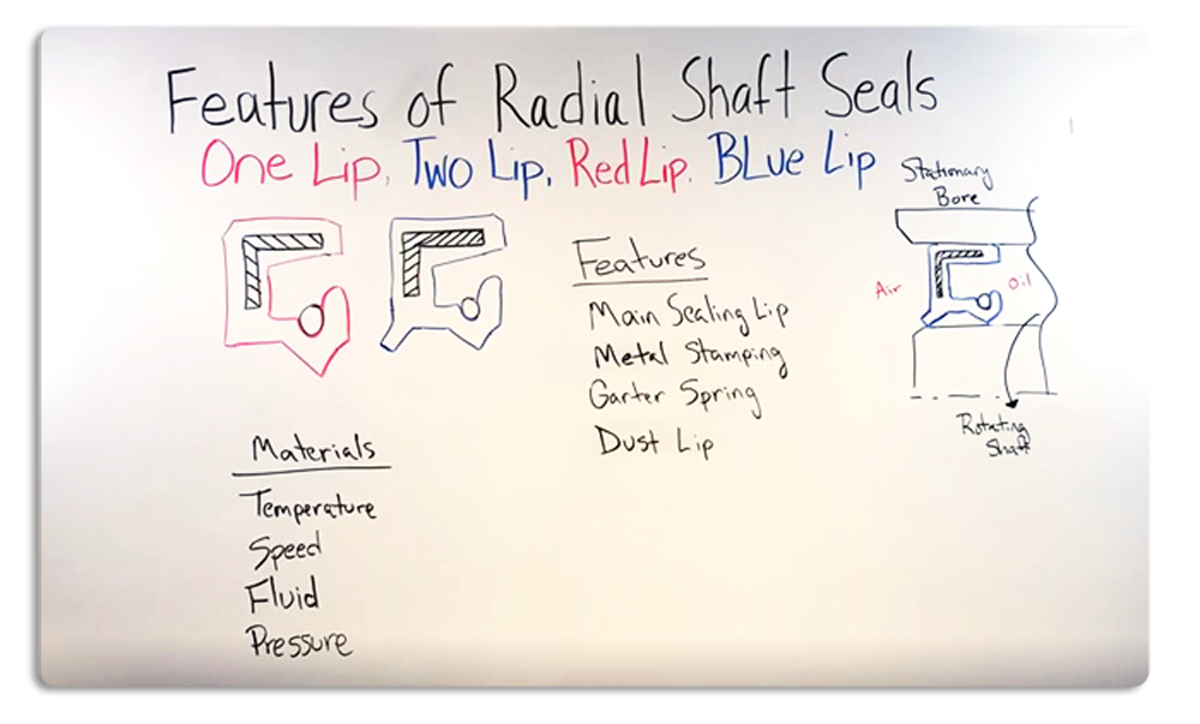 Features of Radial Shaft Seals
One Lip, Two Lip, Red Lip, BLue Lip
Stationary
Bore
Features
Main Sealing Lip
Metal Stamping
Garter Spring
Dust Lip
Air
Oil
Rotating
Shaft
Materials
Temperature
Speed
Fluid
Pressure